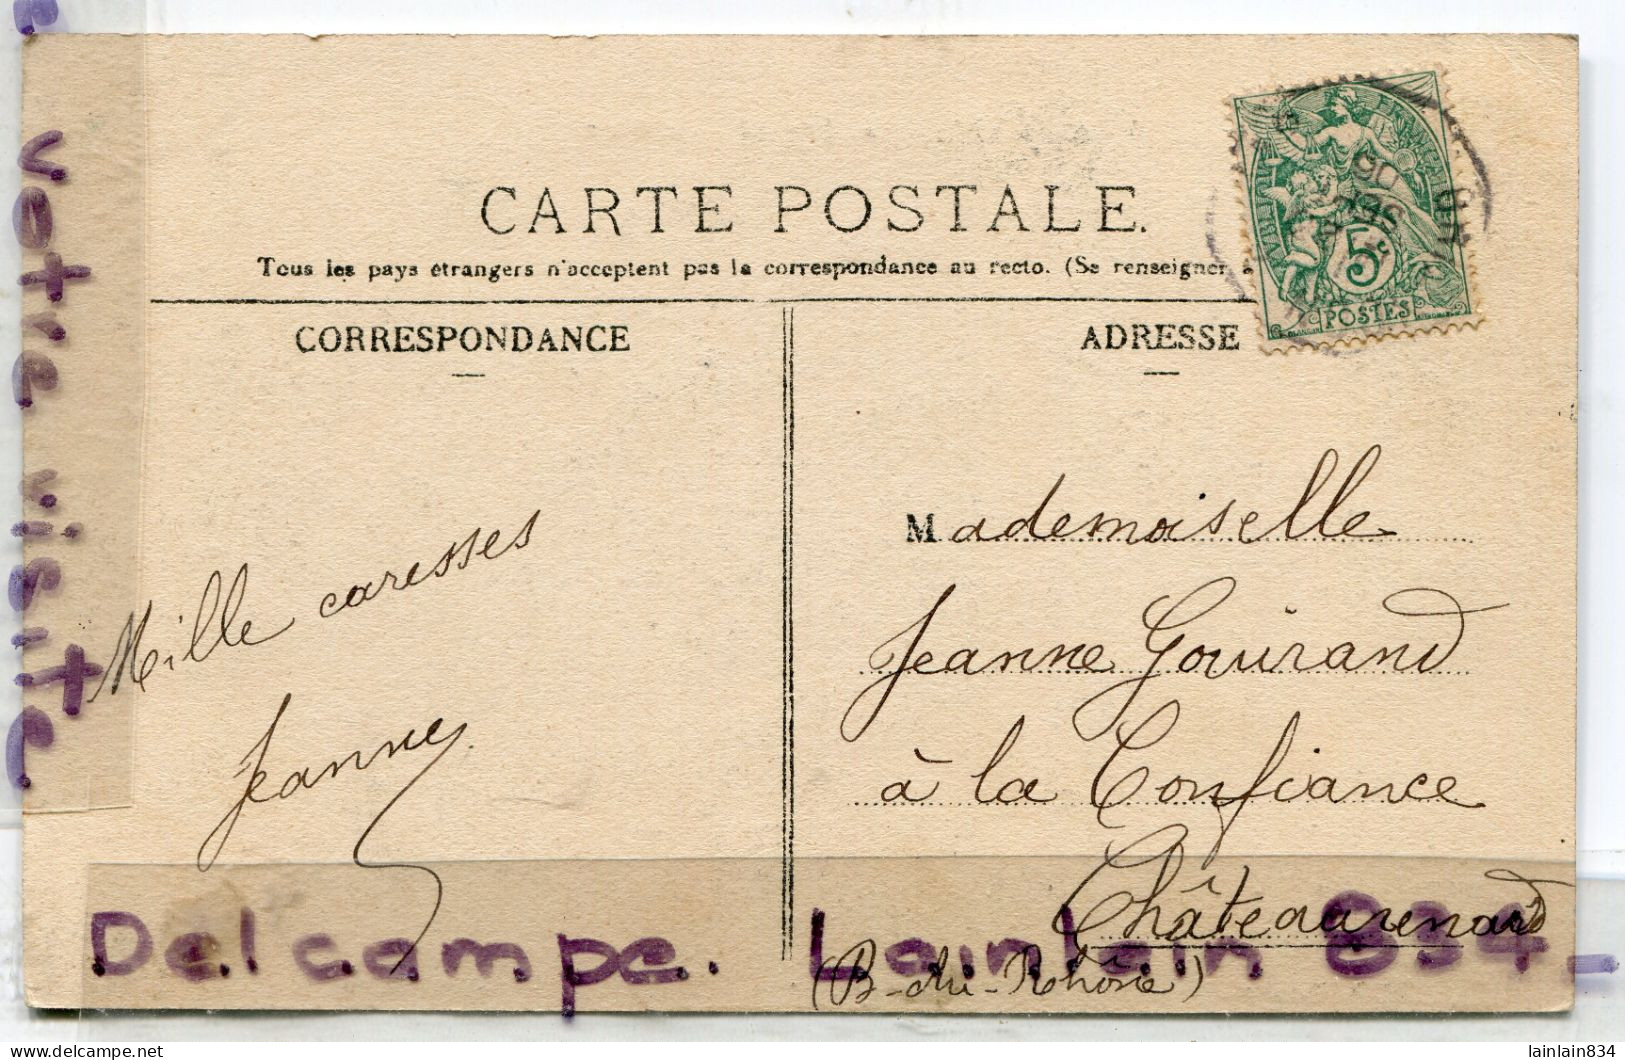 votre visite
CARTE POSTALE.
Tous les pays étrangers n'acceptent pas la correspondance au recto. (Se renseigner à
CORRESPONDANCE
ADRESSE
5c
POSTES
Mille caresses
Jeanne
Mademoiselle
Jeanne Gouirand
à la Confiance
Châteaurenard
(B-du-Rhône)
Delcampe. Lainlain 834_
delcampe.net
lainlain834